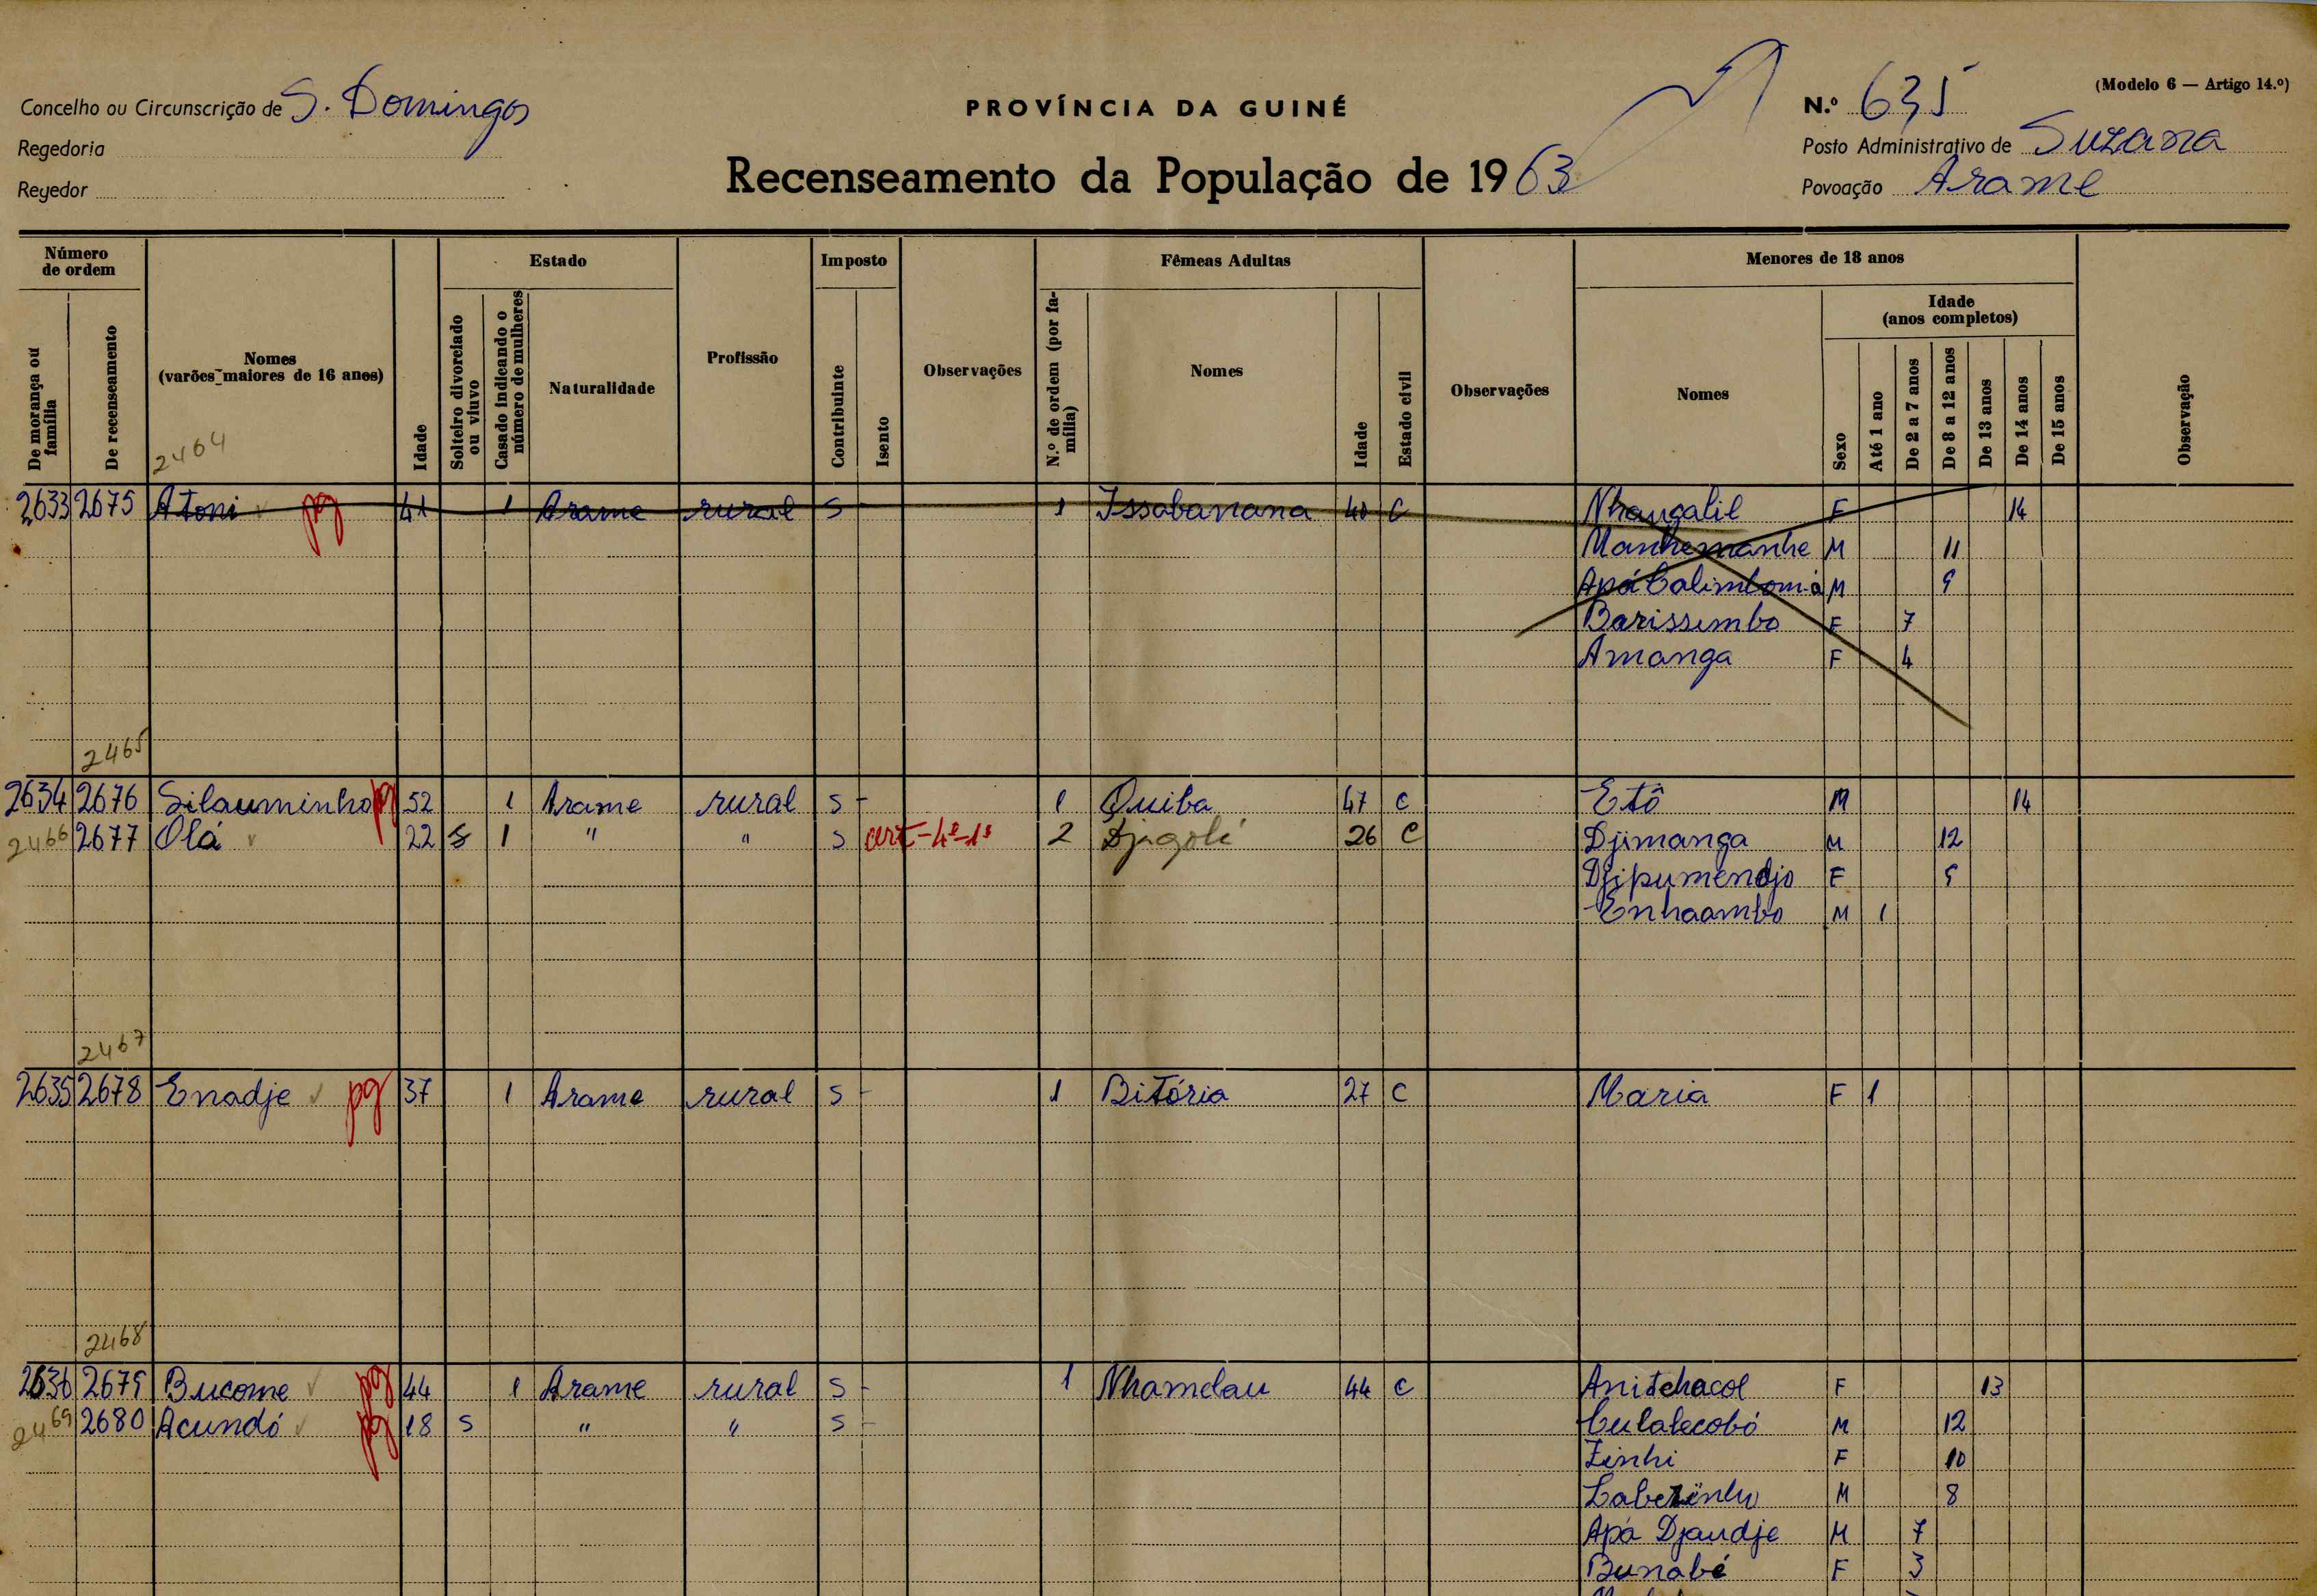 (Modelo 6 — Artigo 14.º)
Concelho ou Circunscrição de S. Domingos
PROVÍNCIA DA GUINÉ
N.º 635
Regedoria
Posto Administrativo de Suzana
Regedor
Recenseamento da População de 1963
Povoação Arame
Número de ordem
Estado
Imposto
Fêmeas Adultas
Menores de 18 anos
De morança ou família
De recenseamento
Nomes (varões maiores de 16 anos)
Idade
Solteiro divorciado ou viuvo
Casado indicando o número de mulheres
Naturalidade
Profissão
Contribuinte
Isento
Observações
N.º de ordem (por família)
Nomes
Idade
Estado civil
Observações
Nomes
Sexo
Idade (anos completos)
Até 1 ano
De 2 a 7 anos
De 8 a 12 anos
De 13 anos
De 14 anos
De 15 anos
Observação
2464
2633 2675 Atoni pg 41 1 Arame rural S - 1 Issabanana 40 C Nhaugalil F 14
Manhemanhe M 11
Apá Calimbomá M 9
Barissembo F 7
Amanga F 4
2465
2634 2676 Silauminho pg 52 1 Arame rural S - 1 Quiba 47 C Etô M 14
2466 2677 Olá 22 S 1 " " S art-4º-1º 2 Djagolé 26 C Djimanga M 12
Djipumendjo F 9
Enhaambo M 1
2467
2635 2678 Enadje pg 37 1 Arame rural S - 1 Bitória 27 C Maria F 1
2468
2636 2679 Bucome pg 44 1 Arame rural S - 1 Nhamelau 44 C Anitehacol F 13
2469 2680 Acundó pg 18 S " " S - Culalecobó M 12
Zinhi F 10
M 8
Apá Djaudje M 7
Bunabé F 3